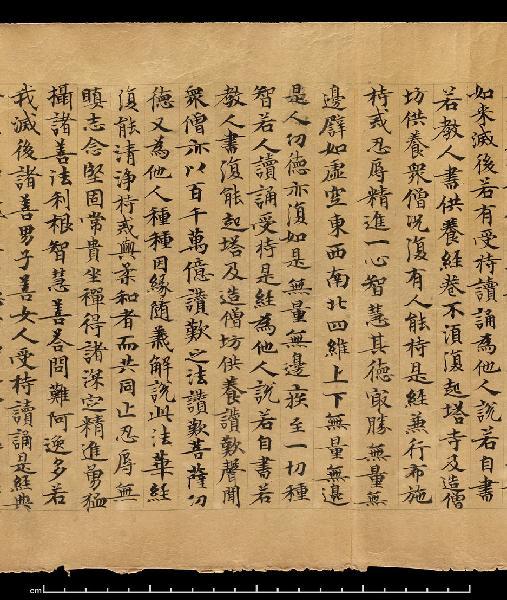 如来滅後若有受持讀誦為他人說若自書
若教人書供養經卷不湏復起塔寺及造僧
坊供養衆僧況復有人能持是經兼行布施
持戒忍辱精進一心智慧其德最勝無量無
邊譬如虛空東西南北四維上下無量無邊
是人功德亦復如是無量無邊疾至一切種
智若人讀誦受持是經為他人說若自書若
教人書復能起塔及造僧坊供養讚歎聲聞
衆僧亦以百千萬億讚歎之法讚歎菩薩功
德又為他人種種因緣隨義解說此法華經
復能清淨持戒與柔和者而共同止忍辱無
瞋志念堅固常貴坐禪得諸深定精進勇猛
攝諸善法利根智慧善荅問難阿逸多若
我滅後諸善男子善女人受持讀誦是經典
cm